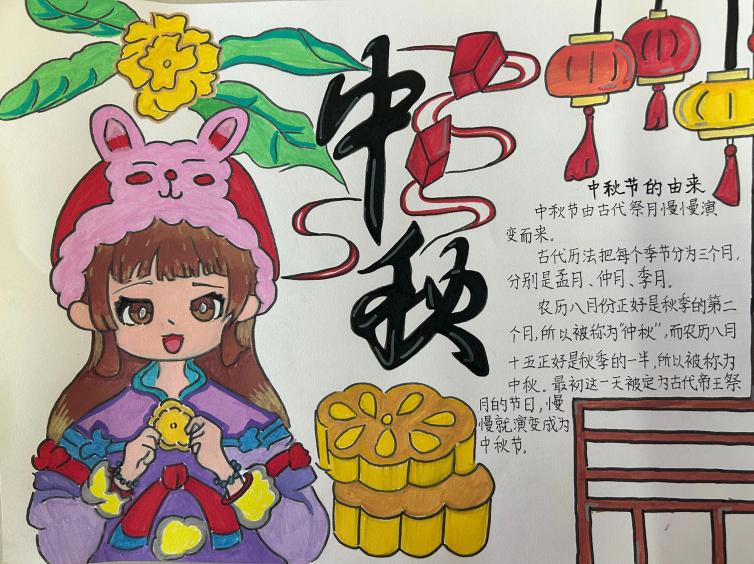 中秋
中秋节的由来
中秋节由古代祭月慢慢演
变而来。
古代历法把每个季节分为三个月,
分别是孟月、仲月、季月。
农历八月份正好是秋季的第二
个月,所以被称为“仲秋”,而农历八月
十五正好是秋季的一半,所以被称为
中秋。最初这一天被定为古代帝王祭
月的节日,慢
慢就演变成为
中秋节。